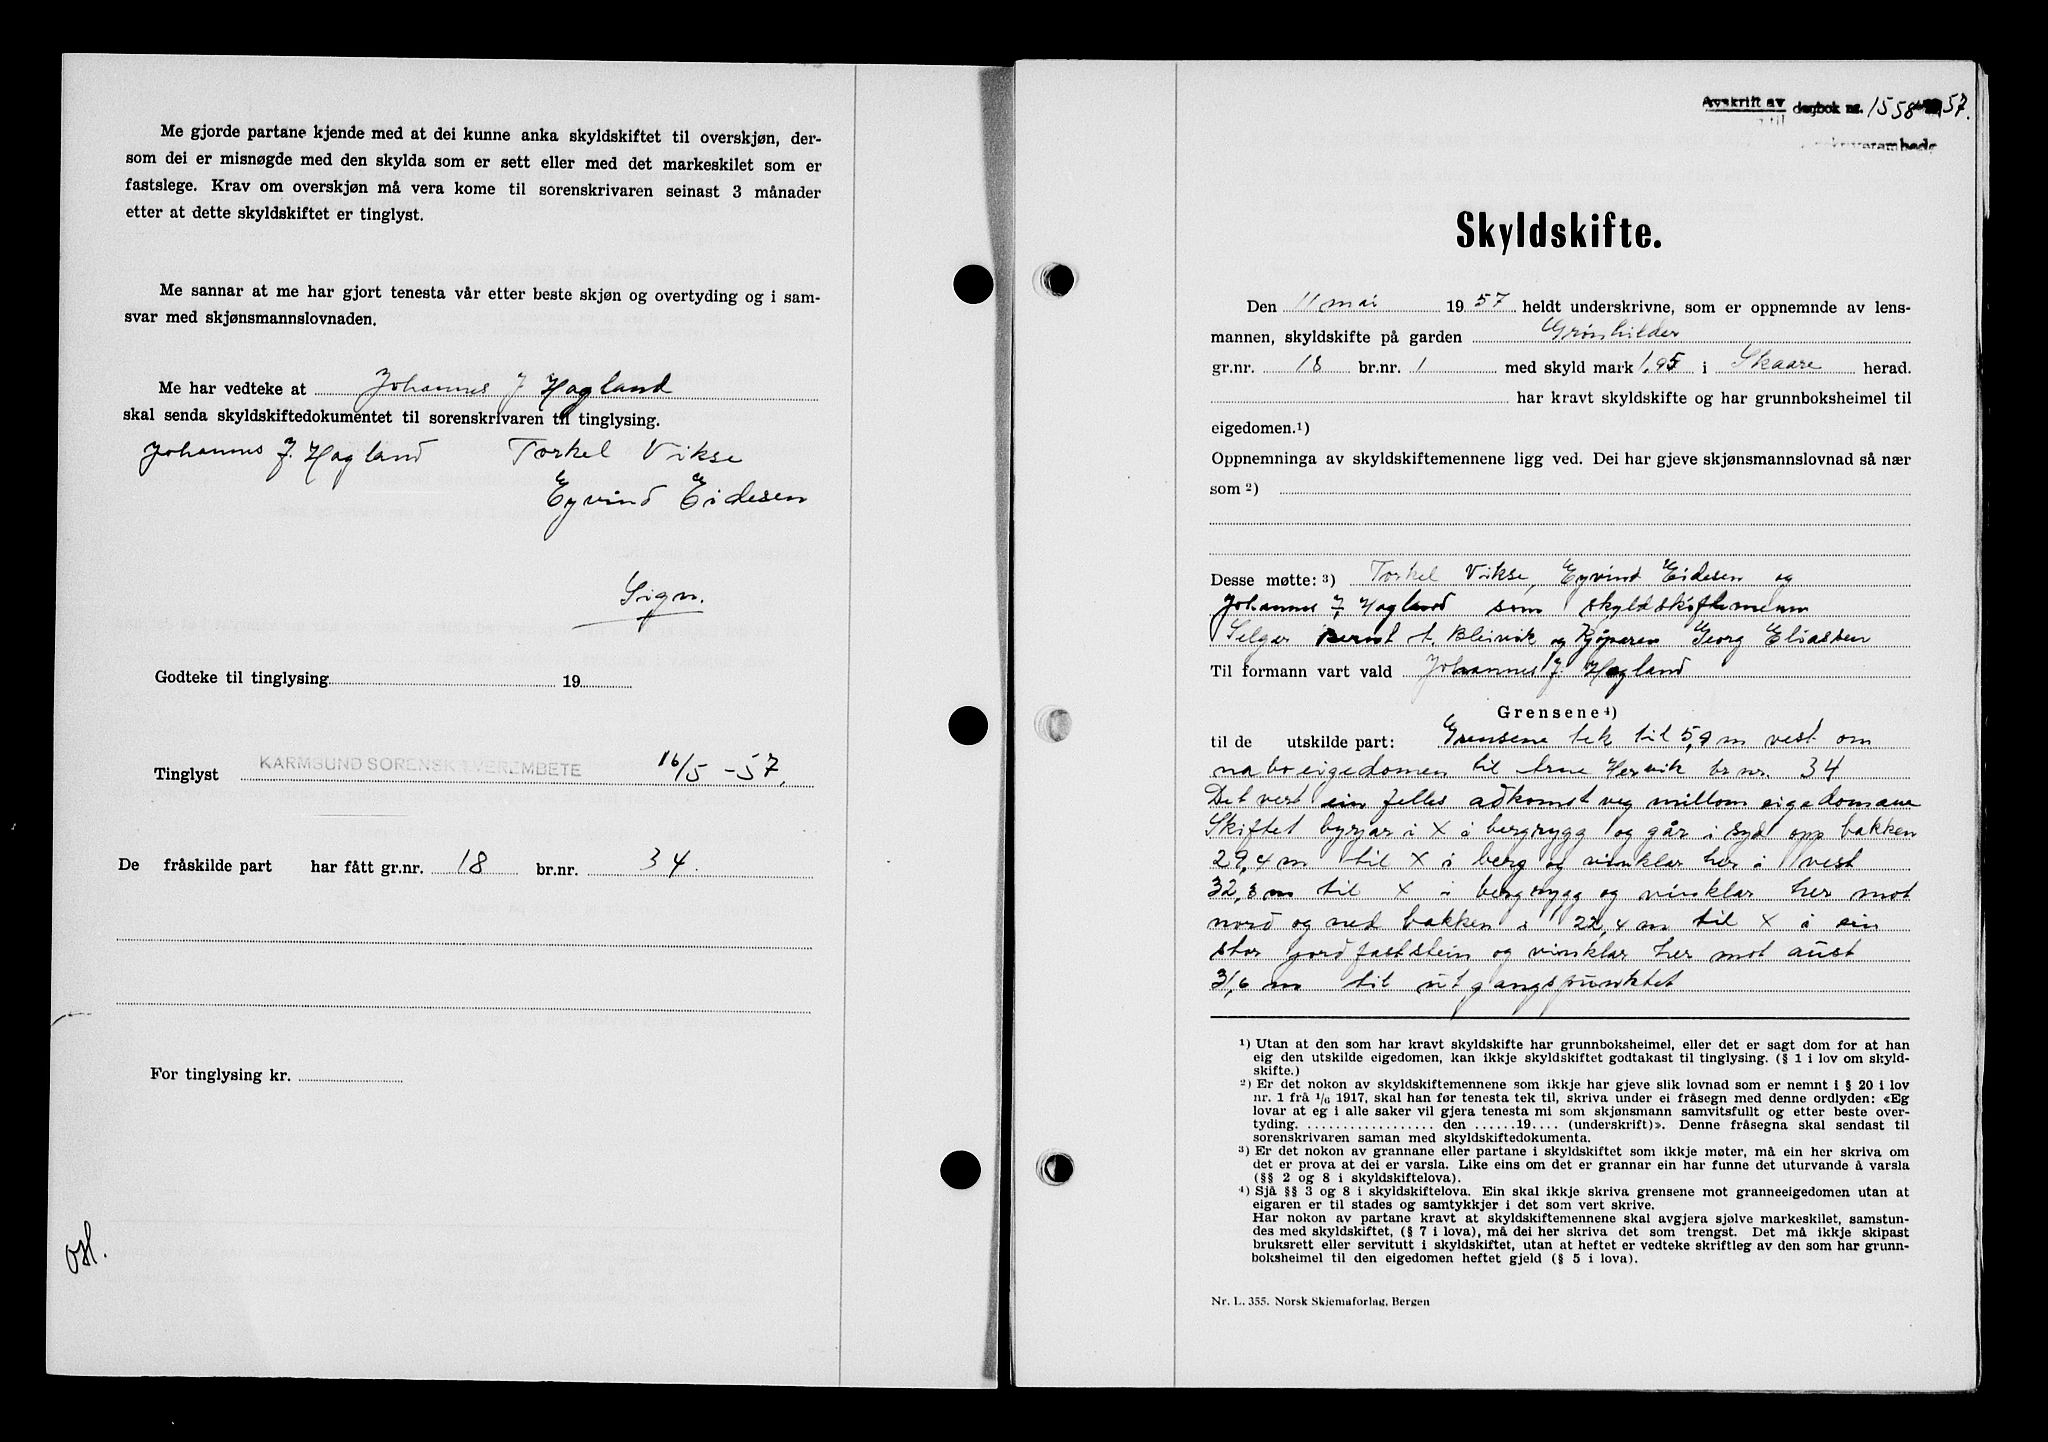 Me gjorde partane kjende med at dei kunne anka skyldskiftet til overskjøn, der-
som dei er misnøgde med den skylda som er sett eller med det markeskilet som er
fastslege. Krav om overskjøn må vera kome til sorenskrivaren seinast 3 månader
etter at dette skyldskiftet er tinglyst.
Me sannar at me har gjort tenesta vår etter beste skjøn og overtyding og i sam-
svar med skjønsmannslovnaden.
Me har vedteke at Johannes J Hagland
skal senda skyldskiftedokumentet til sorenskrivaren til tinglysing.
Johannes J. Hagland Torkel Vikse
Eyvind Eidesen
Sign.
Godteke til tinglysing 19
Tinglyst KARMSUND SORENSKRIVEREMBETE 16/5 -57.
De fråskilde part har fått gr.nr. 18 br.nr. 34.
For tinglysing kr.
Avskrift av dagbok nr. 1558 57.
Skyldskifte.
Den 11 mai 1957 heldt underskrivne, som er oppnemnde av lens-
mannen, skyldskifte på garden Grønhilder
gr.nr. 18 br.nr. 1 med skyld mark 1,95 i Skaare herad.
har kravt skyldskifte og har grunnboksheimel til
eigedomen.1)
Oppnemninga av skyldskiftemennene ligg ved. Dei har gjeve skjønsmannslovnad så nær
som 2)
Desse møtte: 3) Torkel Vikse, Eyvind Eidesen og
Johannes J. Hagland som skyldskiftemenn
Selgar Bernt t. Bleivik og Kjöparen Georg Eliassen
Til formann vart vald Johannes J. Hagland
Grensene 4)
til de utskilde part: Grensene tek til 5,9 m vest om
naboeigedomen til Arne Hervik br nr. 34
Det vert ein felles adkomst veg millom eigedomane
Skiftet byrjar i X i bergrygg og går i syd opp bakken
29,4 m til X i berg og vinklar her i vest
32,3 m til X i bergrygg og vinklar her mot
nord og ned bakken i 22,4 m til X i ein
stor jordfaststein og vinklar her mot aust
31,6 m til utgangspunktet
1) Utan at den som har kravt skyldskifte har grunnboksheimel, eller det er sagt dom for at han
eig den utskilde eigedomen, kan ikkje skyldskiftet godtakast til tinglysing. (§ 1 i lov om skyld-
skifte.)
2) Er det nokon av skyldskiftemennene som ikkje har gjeve slik lovnad som er nemnt i § 20 i lov
nr. 1 frå 1/6 1917, skal han før tenesta tek til, skriva under ei fråsegn med denne ordlyden: «Eg
lovar at eg i alle saker vil gjera tenesta mi som skjønsmann samvitsfullt og etter beste over-
tyding. .................. den ......19.... (underskrift)». Denne fråsegna skal sendast til
sorenskrivaren saman med skyldskiftedokumenta.
3) Er det nokon av grannane eller partane i skyldskiftet som ikkje møter, må ein her skriva om
det er prova at dei er varsla. Like eins om det er grannar ein har funne det uturvande å varsla
(§§ 2 og 8 i skyldskiftelova).
4) Sjå §§ 3 og 8 i skyldskiftelova. Ein skal ikkje skriva grensene mot granneeigedomen utan at
eigaren er til stades og samtykkjer i det som vert skrive.
Har nokon av partane kravt at skyldskiftemennene skal avgjera sjølve markeskilet, samstun-
des med skyldskiftet, (§ 7 i lova), må dei her skriva det som trengst. Det må ikkje skipast
bruksrett eller servitutt i skyldskiftet, utan at heftet er vedteke skriftleg av den som har grunn-
boksheimel til den eigedomen heftet gjeld (§ 5 i lova).
Nr. L. 355. Norsk Skjemaforlag, Bergen